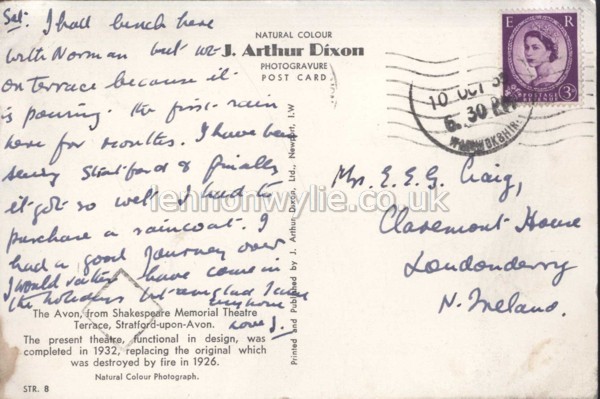 Sat: I shall lunch here
with Norman but not
on terrace because it
is pouring. The first rain
here for months. I have been
seeing Stratford & finally
it got so wet I had to
purchase a raincoat. I
had a good journey over
I would rather have come in
the holidays but am glad I came
anyhow
love J.
NATURAL COLOUR
J. Arthur Dixon
PHOTOGRAVURE
POST CARD
Printed and Published by J. Arthur Dixon, Ltd., Newport, I.W
E R
POSTAGE REVENUE
3D
10 OCT 5
6.30 PM
WARWICKSHIRE
Mrs. E. E. G. Craig,
Claremont House
Londonderry
N. Ireland.
lennonwylie.co.uk
The Avon, from Shakespeare Memorial Theatre
Terrace, Stratford-upon-Avon.
The present theatre, functional in design, was
completed in 1932, replacing the original which
was destroyed by fire in 1926.
Natural Colour Photograph.
STR. 8